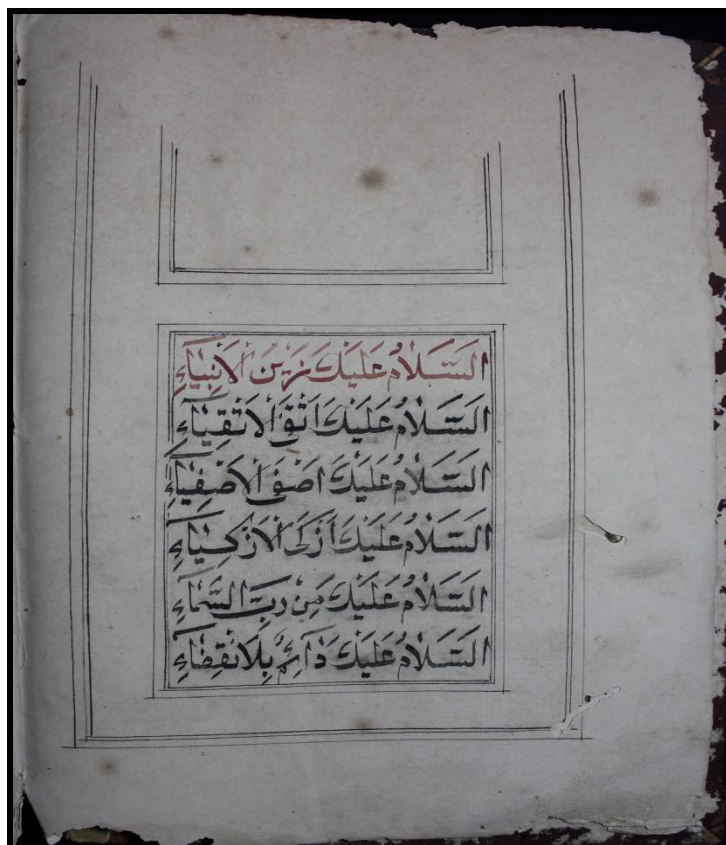 السَّلَامُ عَلَيْكَ زَيْنَ الْاَنْبِيَاءِ
السَّلَامُ عَلَيْكَ اَتْقَى الْاَتْقِيَاءِ
السَّلَامُ عَلَيْكَ اَصْفَى الْاَصْفِيَاءِ
السَّلَامُ عَلَيْكَ أَزْكَى الْاَزْكِيَاءِ
السَّلَامُ عَلَيْكَ مِنْ رَبِّ السَّمَاءِ
السَّلَامُ عَلَيْكَ دَائِمٌ بِلَانْقِضَاءِ